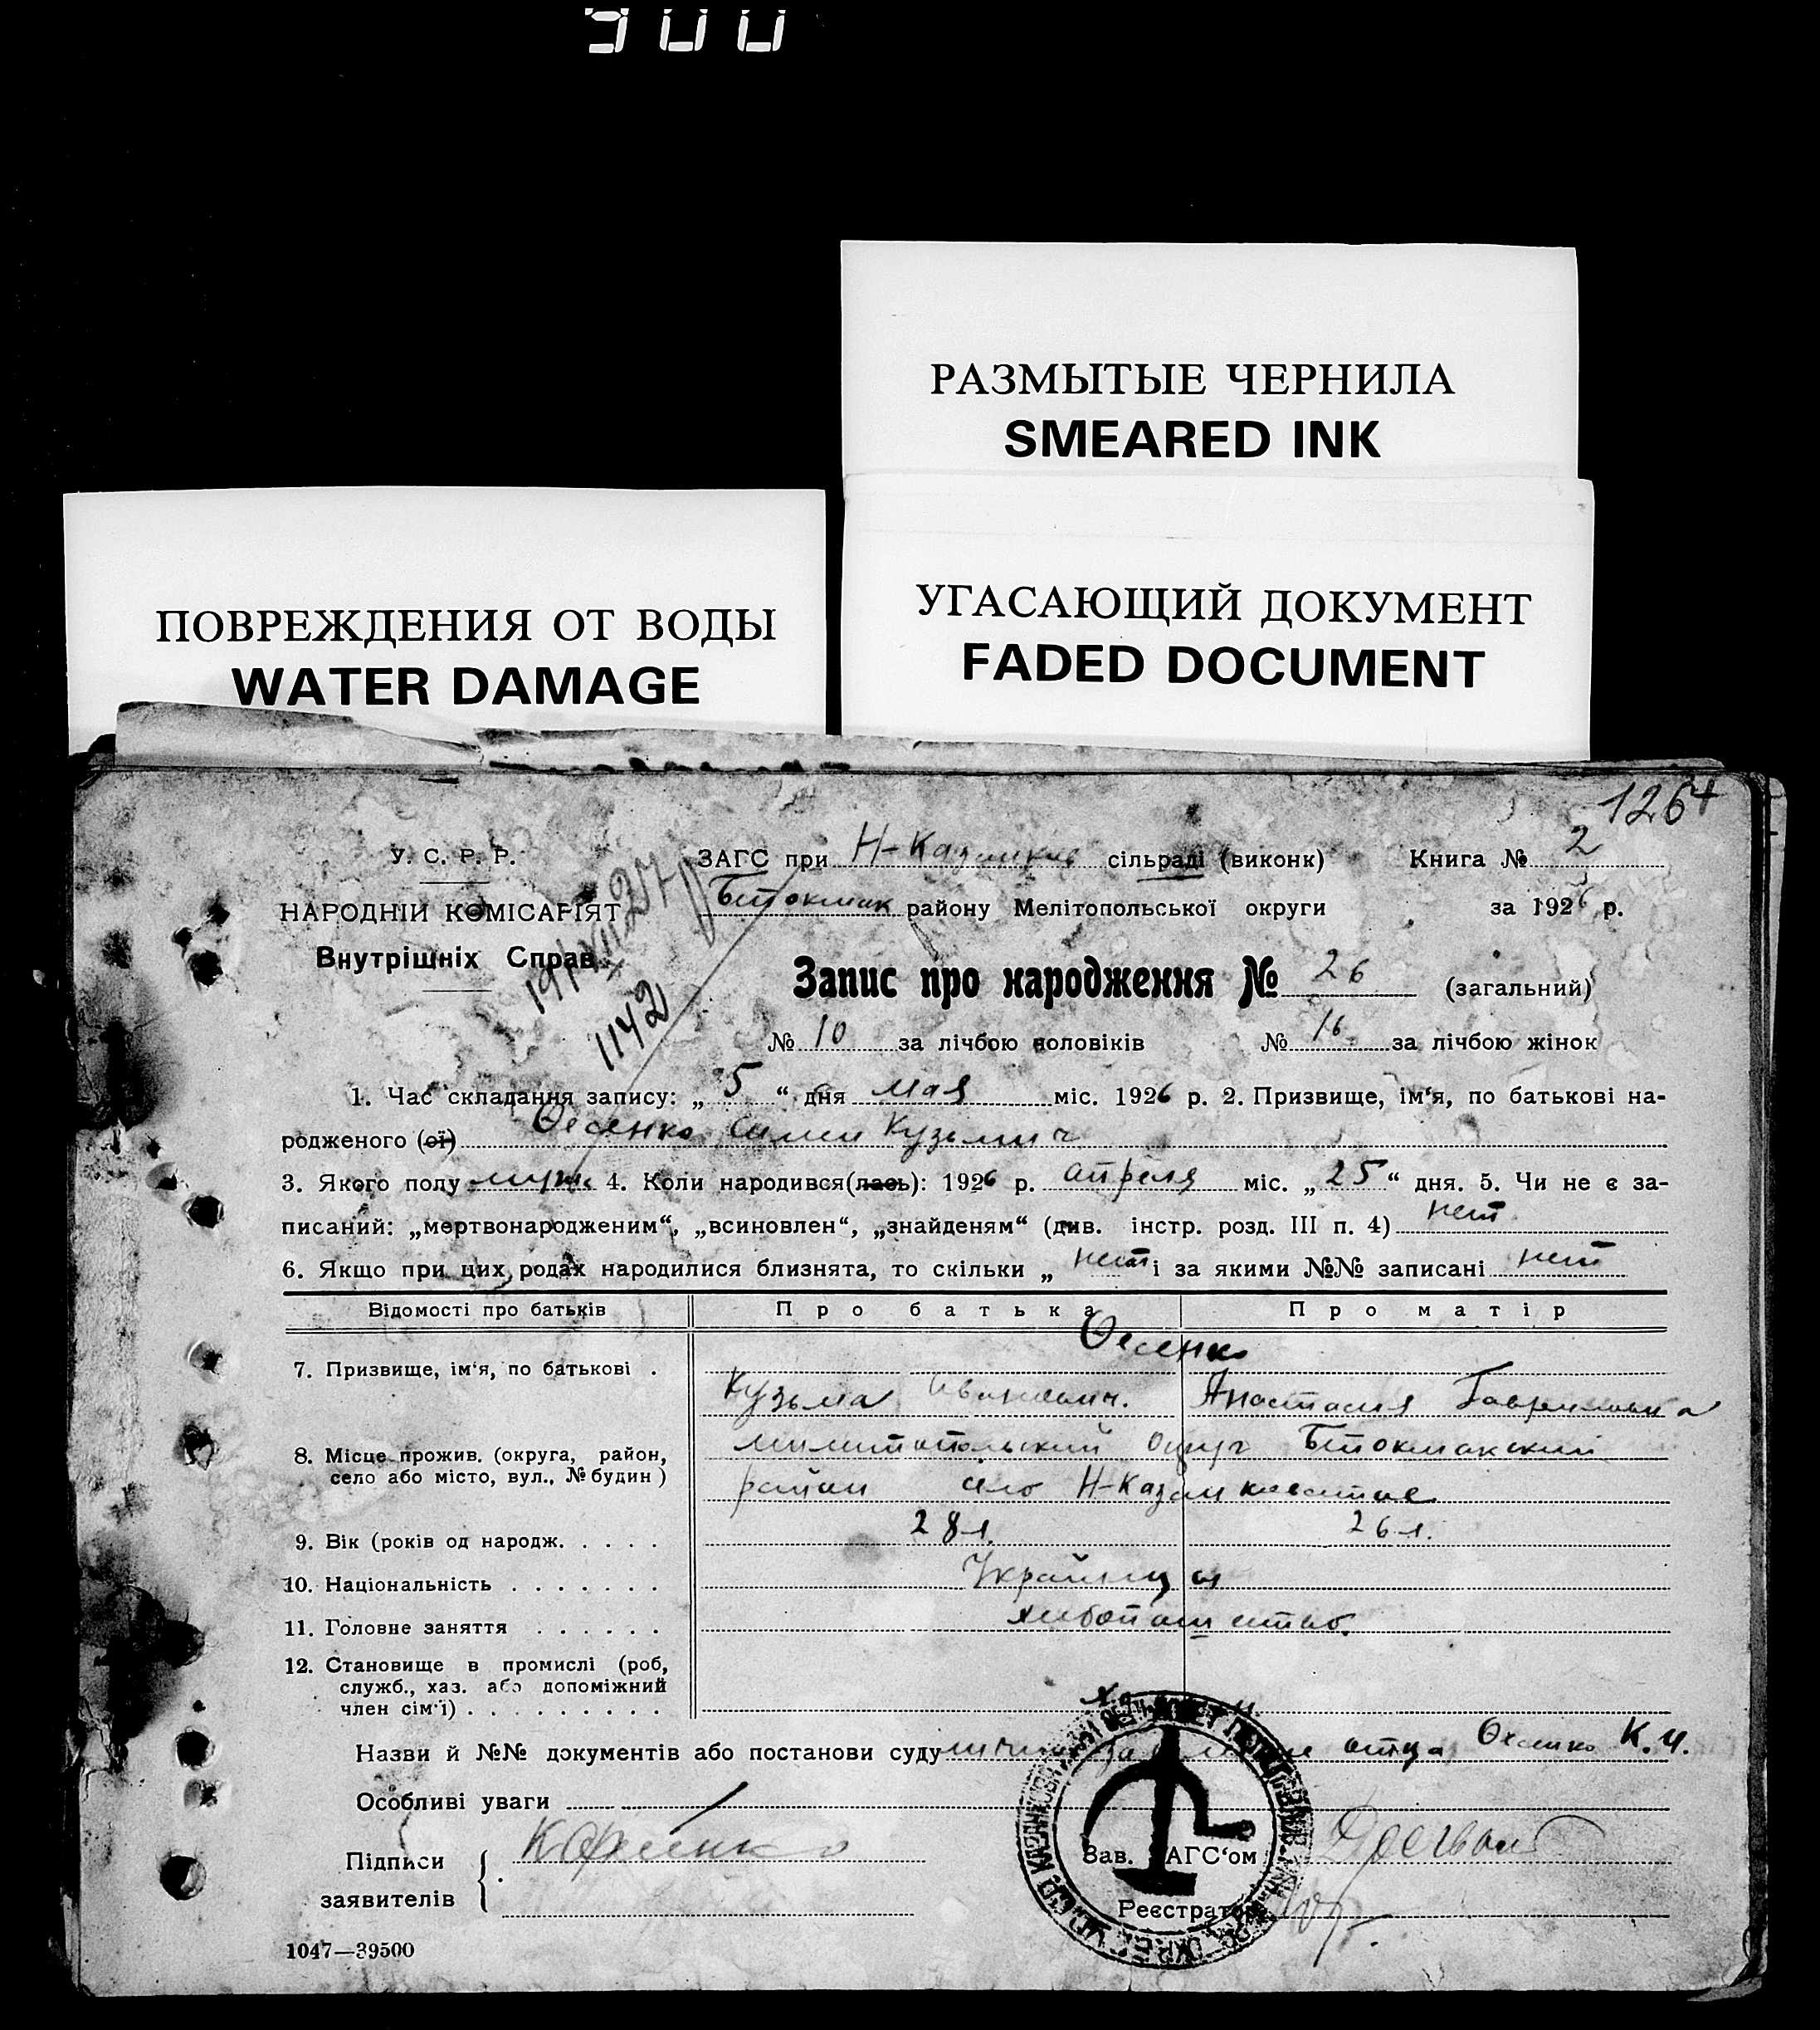 900
РАЗМЫТЫЕ ЧЕРНИЛА
SMEARED INK
ПОВРЕЖДЕНИЯ ОТ ВОДЫ
WATER DAMAGE
УГАСАЮЩИЙ ДОКУМЕНТ
FADED DOCUMENT
1264
У. С. Р. Р.
ЗАГС при сільраді (виконк) Книга № 2
НАРОДНІЙ КОМІСАРІЯТ
Бтокмак району Мелітопольської округи за 1926 р.
Внутрішніх Справ
Запис про народження № 26 (загальний)
1142
№ 10 за лічбою чоловіків № 16 за лічбою жінок
1. Час складання запису: „ 5 “ дня мая міс. 1926 р. 2. Призвище, ім‘я, по батькові на-
родженого (ої) Ѳесенко Кузьмич
3. Якого полу муж. 4. Коли народився(лась): 1926 р. апреля міс. „ 25 “ дня. 5. Чи не є за-
писаний: „мертвонародженим“, „всиновлен“, „знайденям“ (див. інстр. розд. III п. 4) нет
6. Якщо при цих родах народилися близнята, то скільки „ нет і за якими №№ записані нет
Відомості про батьків Про батька Про матір
Ѳесенко
7. Призвище, ім‘я, по батькові .
Кузьма Иванович. Анастасия Гавриловна
8. Місце прожив. (округа, район,
село або місто, вул., № будин)
округ Бтокмакский
район село
9. Вік (років од народж. . . . . 28 л. 26 л.
10. Національність . . . . . . .
11. Головне заняття . . . . . .
12. Становище в промислі (роб,
служб., хаз. або допоміжний
член сім‘ї) . . . . . . . . .
Назви й №№ документів або постанови суду отца Ѳесенко К. И.
Особливі уваги
Підписи
заявителів
Зав. ЗАГС‘ом
Реєстратор
1047—39500